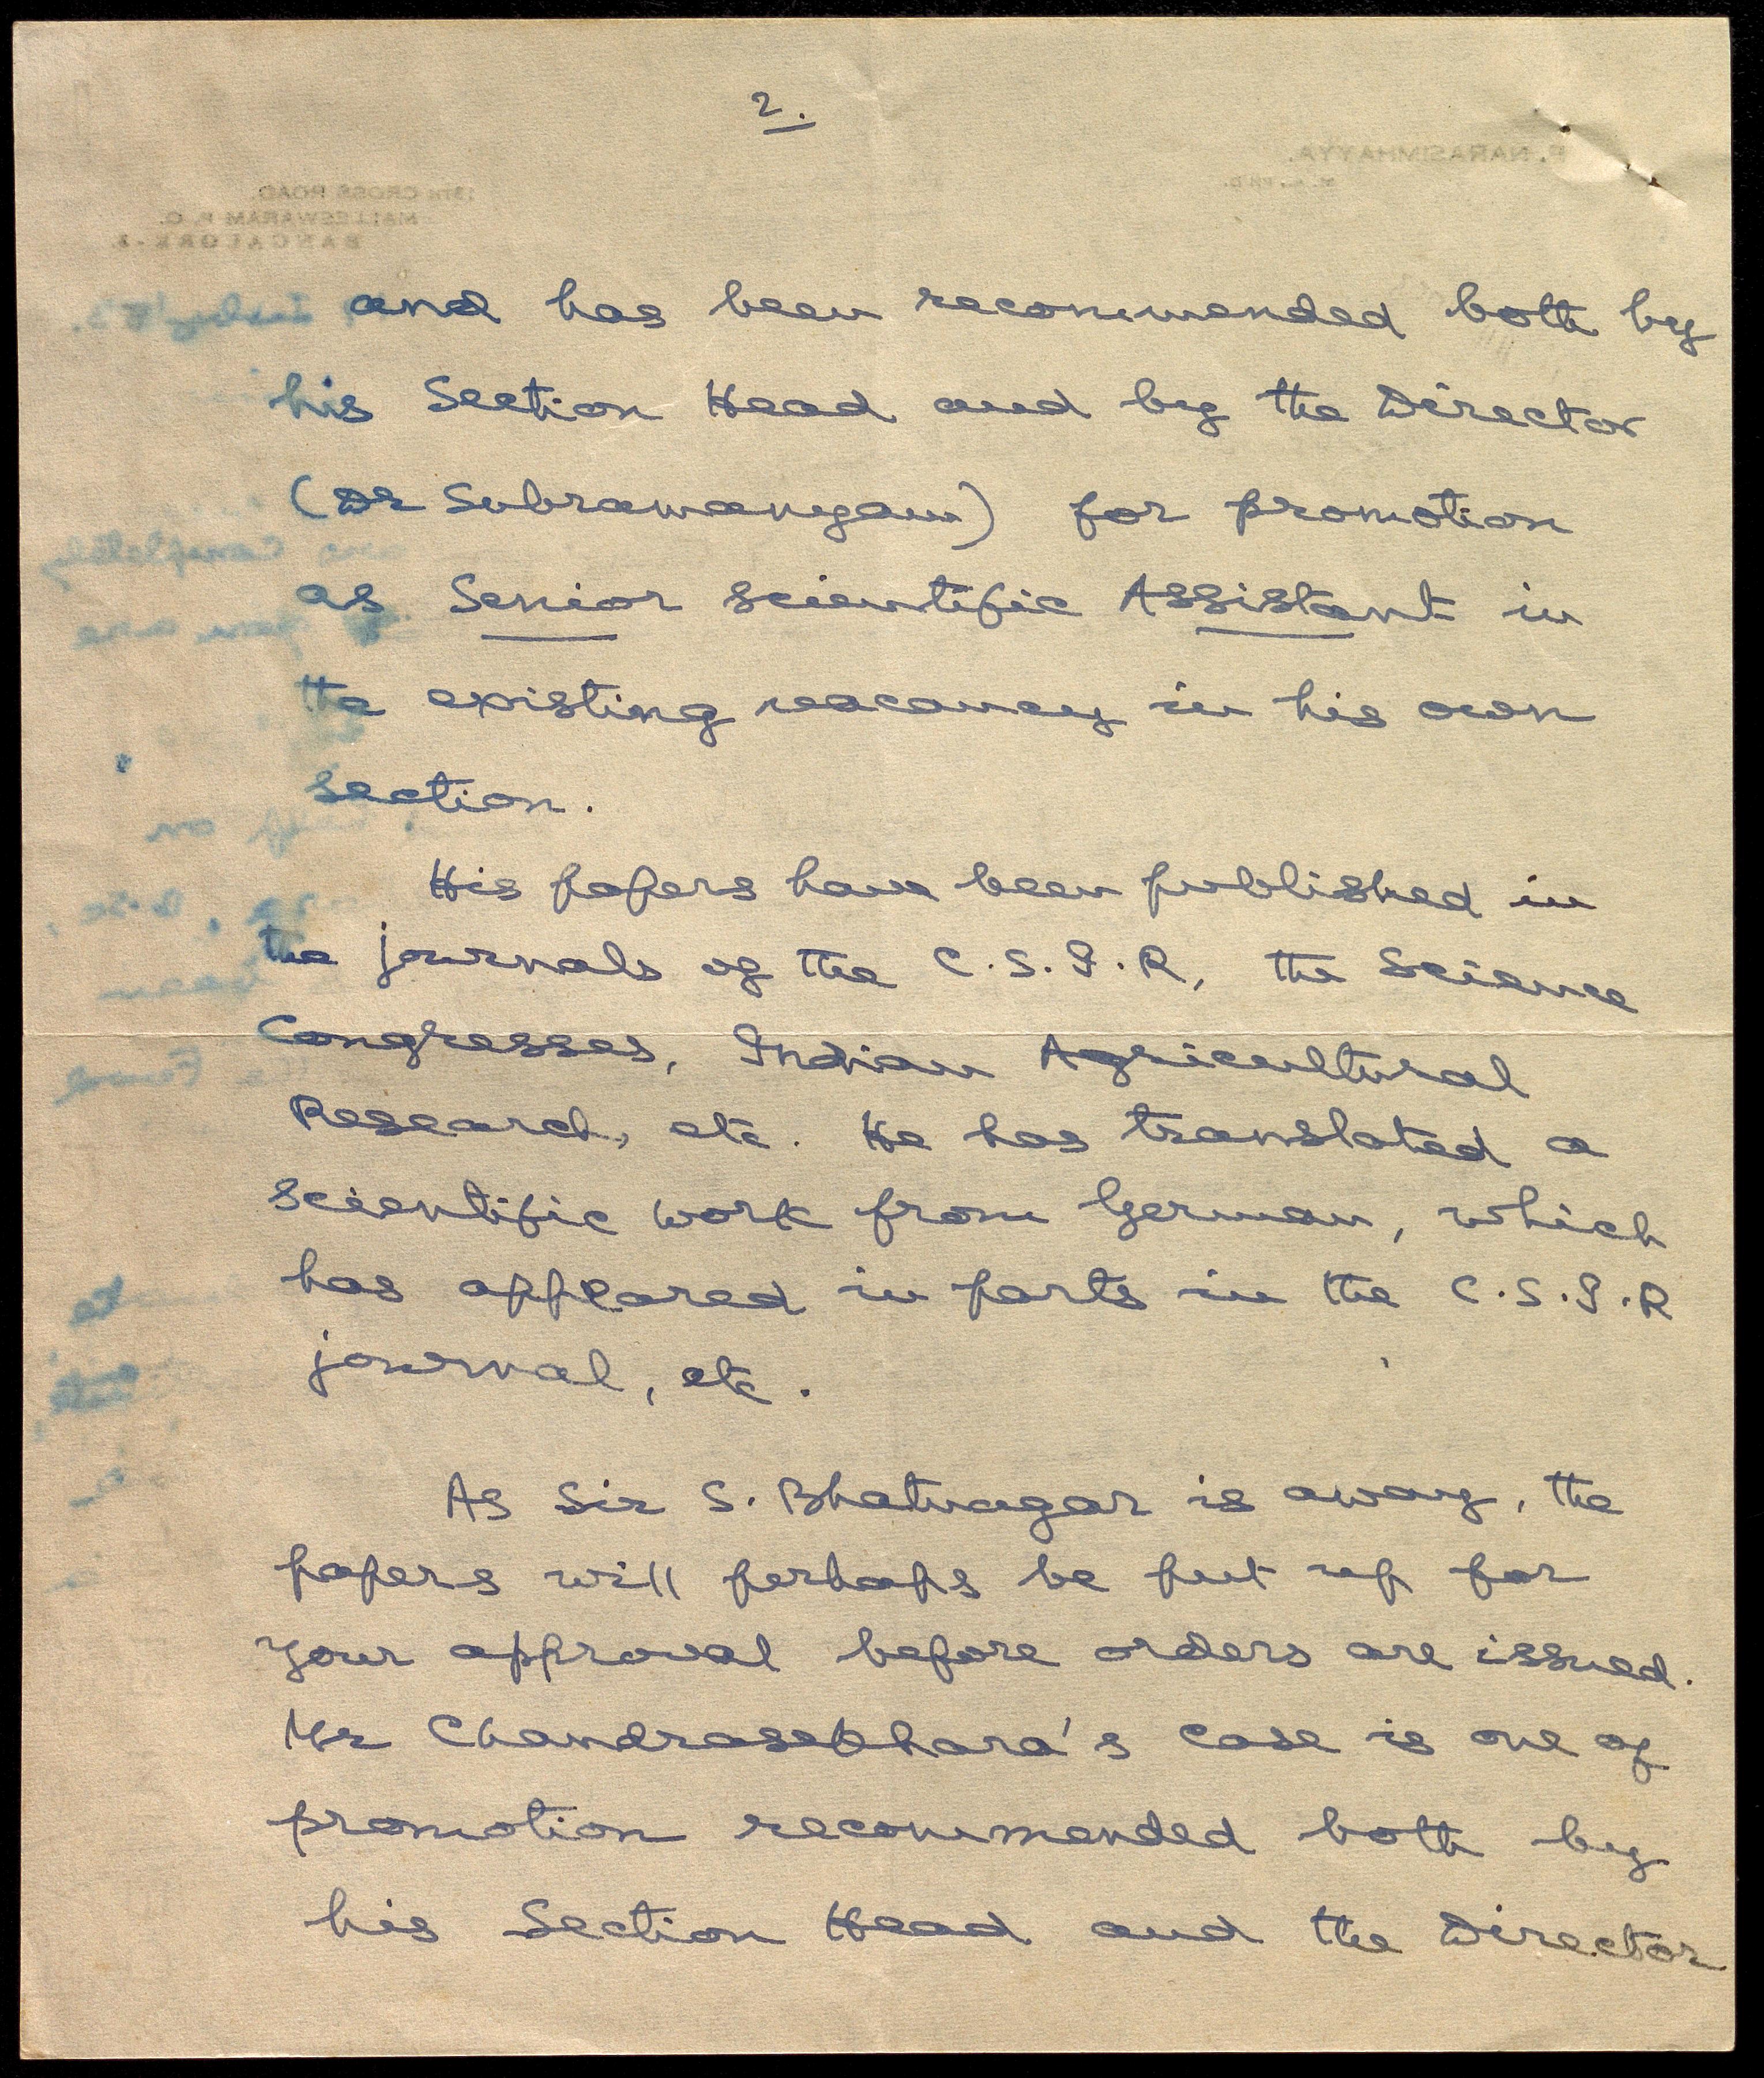 2.
P. NARASIMHAYYA.
M.A., PH.D.
13TH CROSS ROAD.
MALLESWARAM P. O.
BANGALORE-3.
and has been recommended both by
his Section Head and by the Director
(Dr Subramanyam) for promotion
as Senior Scientific Assistant in
the existing vacancy in his own
section.
His papers have been published in
the journals of the C.S.I.R, the Science
Congresses, Indian Agricultural
Research, etc. He has translated a
scientific work from German, which
has appeared in parts in the C.S.I.R
journal, etc.
As Sir S. Bhatnagar is away, the
papers will perhaps be put up for
your approval before orders are issued.
Mr Chandrasekhara's case is one of
promotion recommended both by
his Section Head and the Director